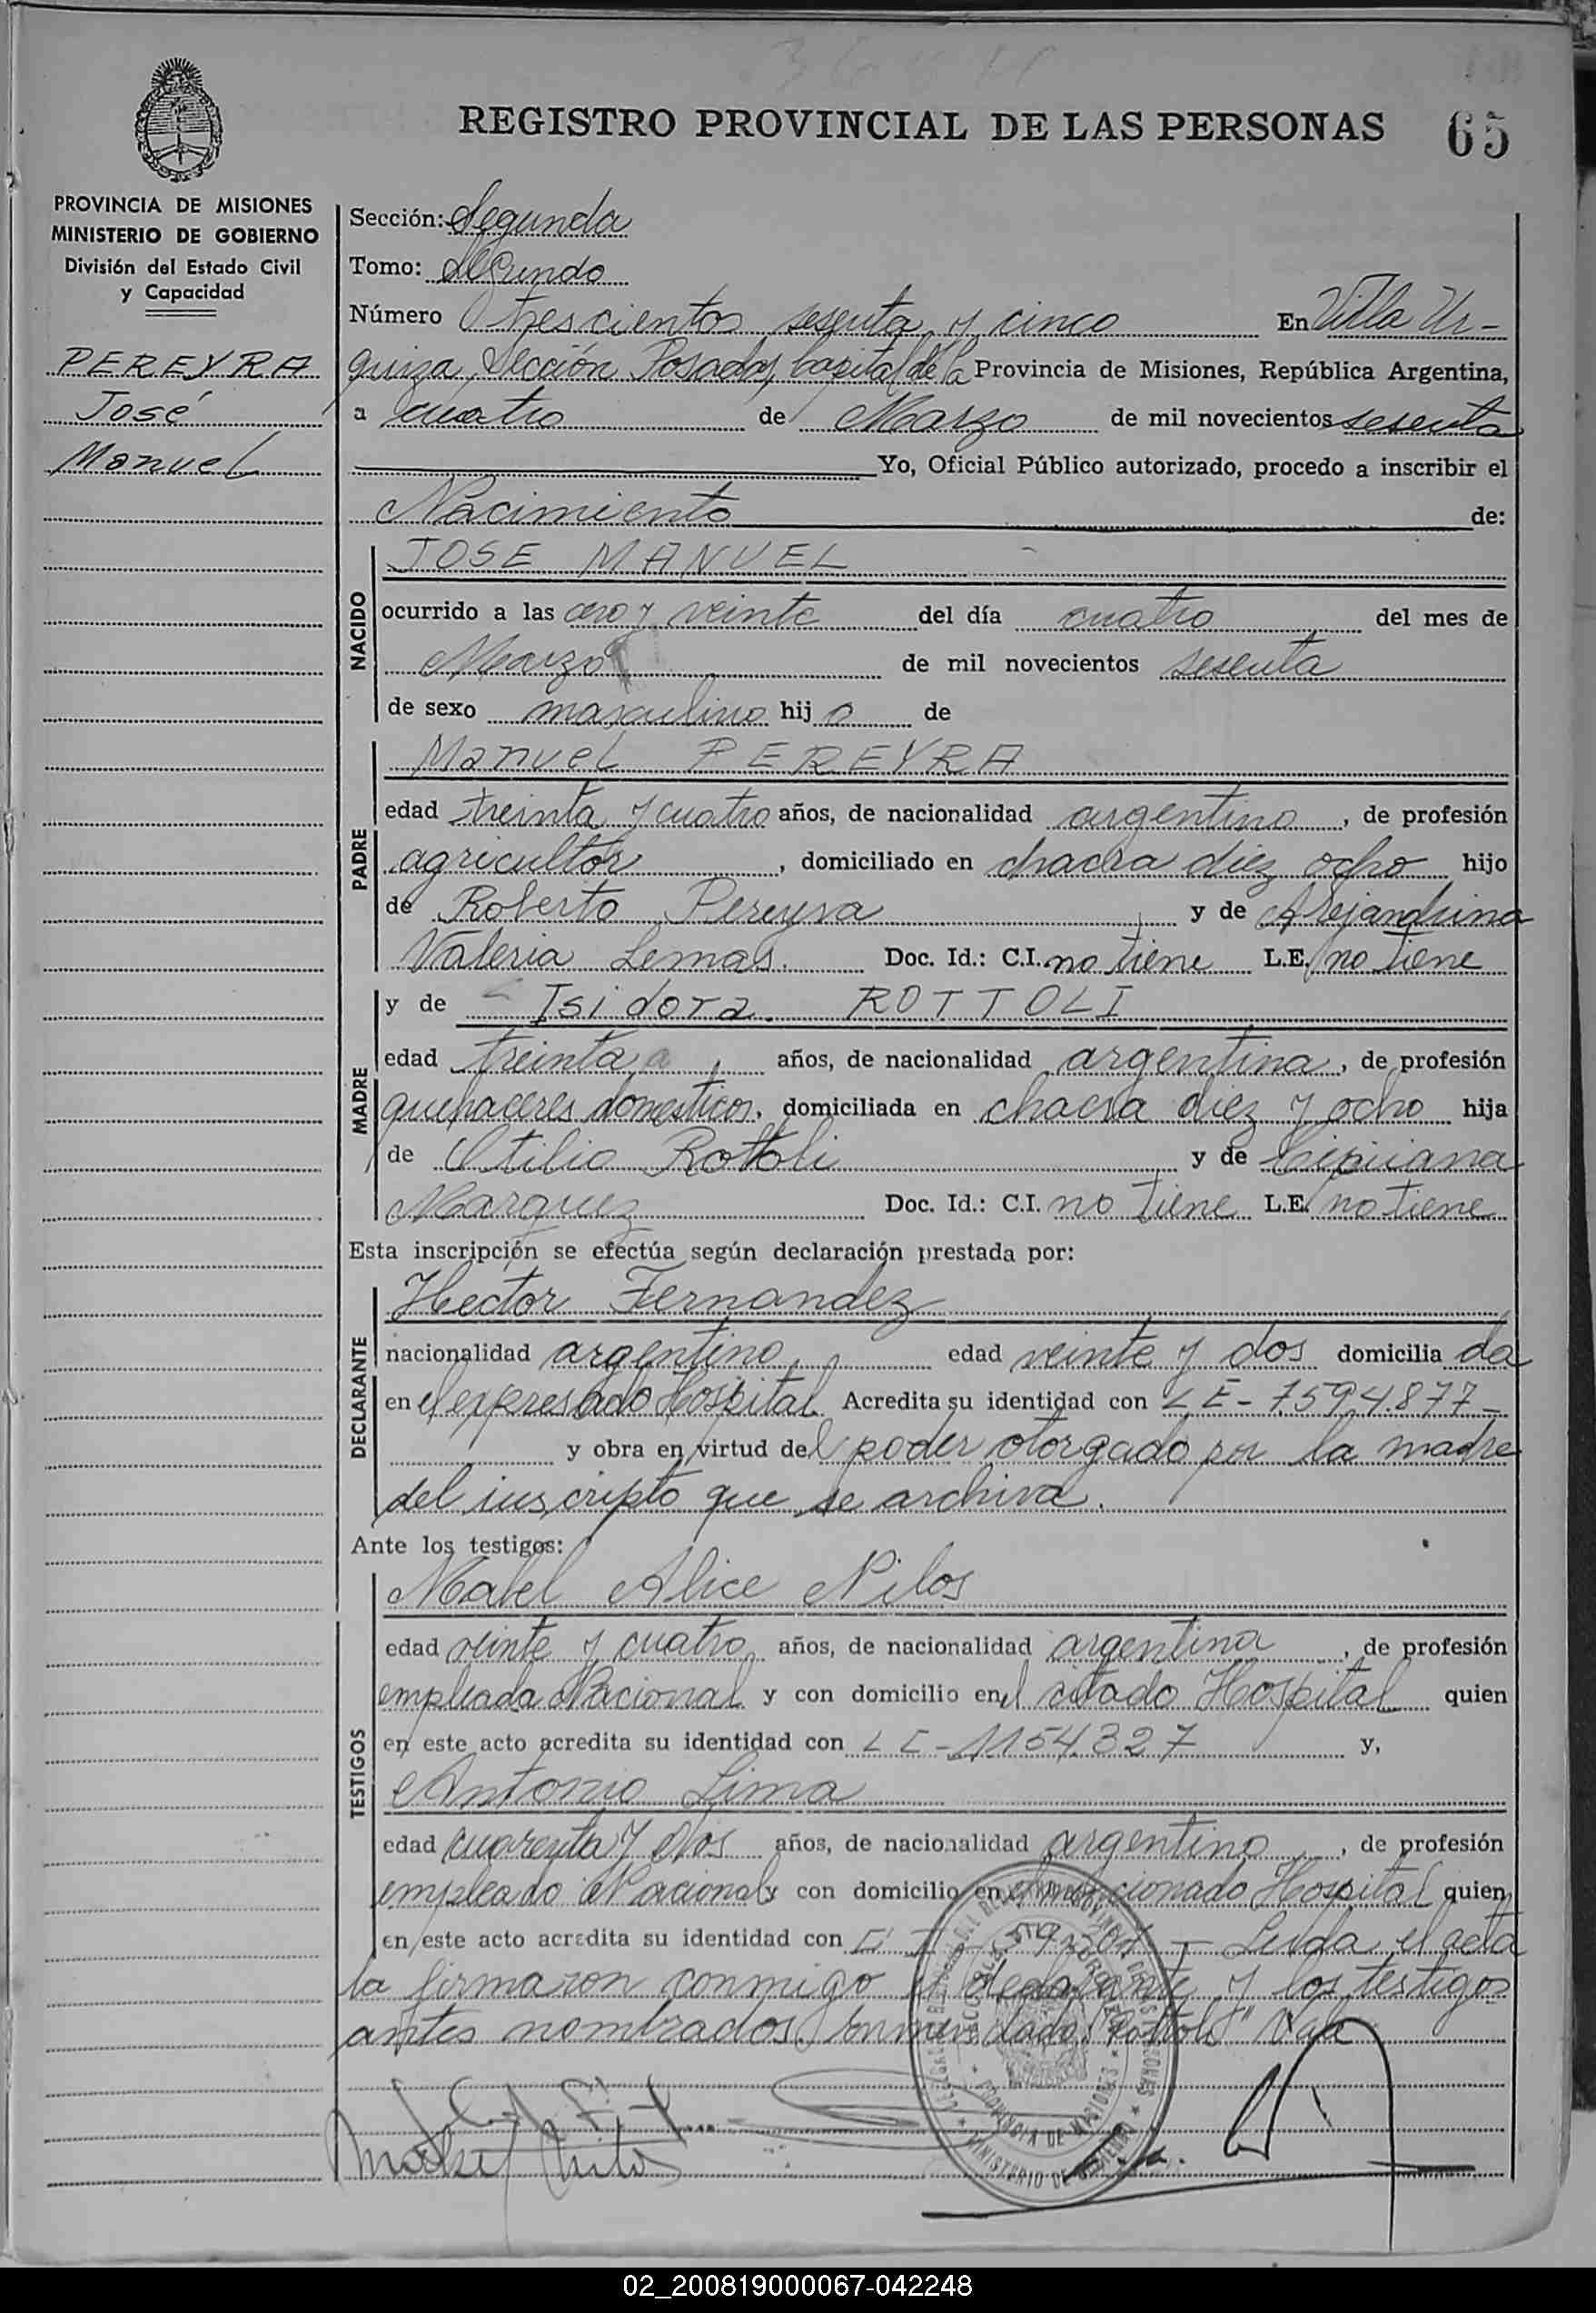 REGISTRO PROVINCIAL DE LAS PERSONAS 65
PROVINCIA DE MISIONES
MINISTERIO DE GOBIERNO
División del Estado Civil
y Capacidad
PEREYRA
José
Manuel
Sección: Segunda
Tomo: Segundo
Número trescientos sesenta y cinco En Villa Ur-
quiza, Sección Posadas, Capital de la Provincia de Misiones, República Argentina,
a cuatro de Marzo de mil novecientos sesenta
Yo, Oficial Público autorizado, procedo a inscribir el
Nacimiento de:
NACIDO
JOSE MANUEL
ocurrido a las cero y veinte del día cuatro del mes de
Marzo de mil novecientos sesenta
de sexo masculino hijo de
PADRE
Manuel PEREYRA
edad treinta y cuatro años, de nacionalidad argentino, de profesión
agricultor, domiciliado en chacra diez ocho hijo
de Roberto Pereyra y de Alejandrina
Valeria Lemas. Doc. Id.: C.I. no tiene L.E. no tiene
MADRE
y de Isidora ROTTOLI
edad treinta años, de nacionalidad argentina, de profesión
quehaceres domesticos, domiciliada en chacra diez y ocho hija
de Otilio Rottoli y de Cipriana
Marquez Doc. Id.: C.I. no tiene L.E. no tiene
Esta inscripción se efectúa según declaración prestada por:
DECLARANTE
Hector Fernandez
nacionalidad argentino edad veinte y dos domiciliada
en el expresado Hospital Acredita su identidad con LE - 7.594.877 -
y obra en virtud del poder otorgado por la madre
del inscripto que se archiva.
Ante los testigos:
TESTIGOS
Mabel Alice Nilos
edad veinte y cuatro años, de nacionalidad argentina, de profesión
empleada Nacional y con domicilio en el citado Hospital quien
en este acto acredita su identidad con LC - 1154.327 y,
Antonio Lima
edad cuarenta y dos años, de nacionalidad argentino, de profesión
empleado Nacional y con domicilio en el mencionado Hospital quien
en este acto acredita su identidad con - Leida el acta
la firmaron conmigo el declarante y los testigos
antes nombrados. Enmendado "Rottoli" Vale
PROVINCIA DE MISIONES
MINISTERIO DE GOBIERNO
02_200819000067-042248